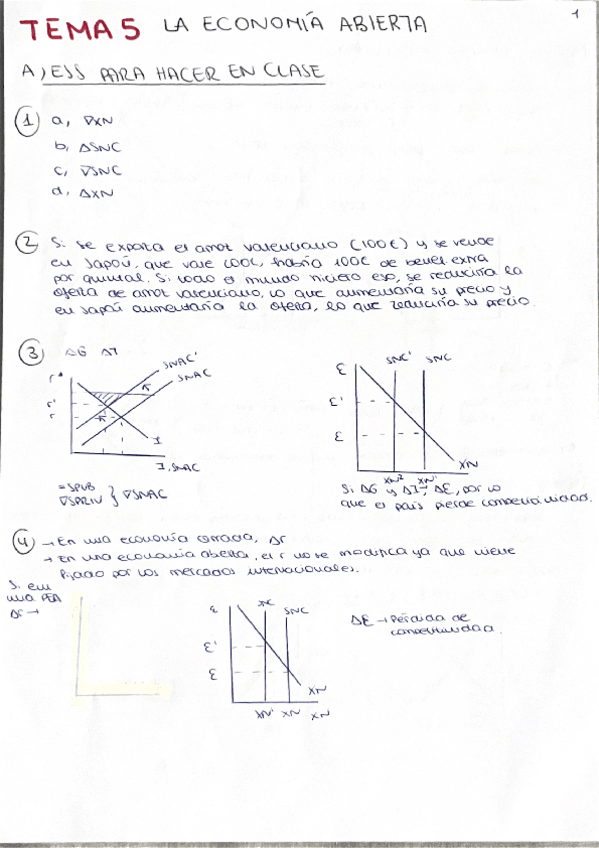 1
TEMA 5 LA ECONOMÍA ABIERTA
A) ESS PARA HACER EN CLASE
1 a, ∇XN
b, ΔSNC
c, ∇SNC
d, ΔXN
2 Si se exporta el arroz valenciano (100€) y se vende
en Japón, que vale 200€, habría 100€ de benef extra
por quintal. Si todo el mundo hiciera eso, se reduciría la
oferta de arroz valenciano, lo que aumentaría su precio y
en Japón aumentaría la oferta, lo que reduciría su precio.
3 ΔG ΔI
r*
r'
r
SNAC'
SNAC
I
I, SNAC
=SPUB
∇SPRIV } ∇SNAC
ε
ε'
ε
SNC' SNC
XN
XN² XN'
Si ΔG y ΔI → Δε, por lo
que el país pierde competitividad.
4 → En una economía cerrada, Δr
→ En una economía abierta, el r no se modifica ya que viene
fijado por los mercados internacionales.
Si en
una PEA
Δr →
ε
ε'
ε
SNC
XN
XN' XN XN
Δε → Pérdida de
competitividad.